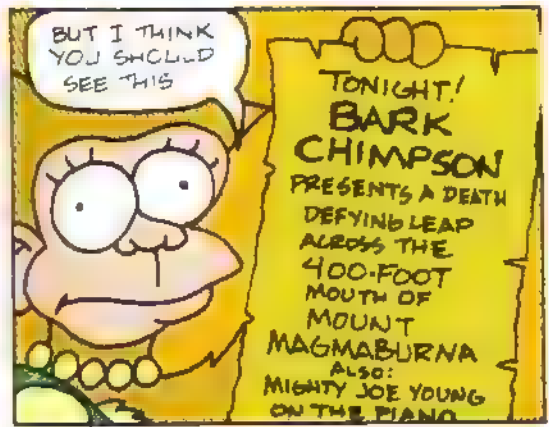 BUT I THINK
YOU SHOULD
SEE THIS
TONIGHT!
BARK
CHIMPSON
PRESENTS A DEATH
DEFYING LEAP
ACROSS THE
400-FOOT
MOUTH OF
MOUNT
MAGMABURNA
ALSO:
MIGHTY JOE YOUNG
ON THE PIANO